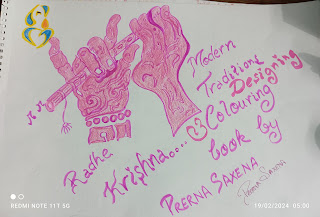 Modern
Traditional
Designing
Colouring
book by
PRERNA SAXENA
Radhe
Krishna....
Prerna Saxena
REDMI NOTE 11T 5G
19/02/2024 05:00